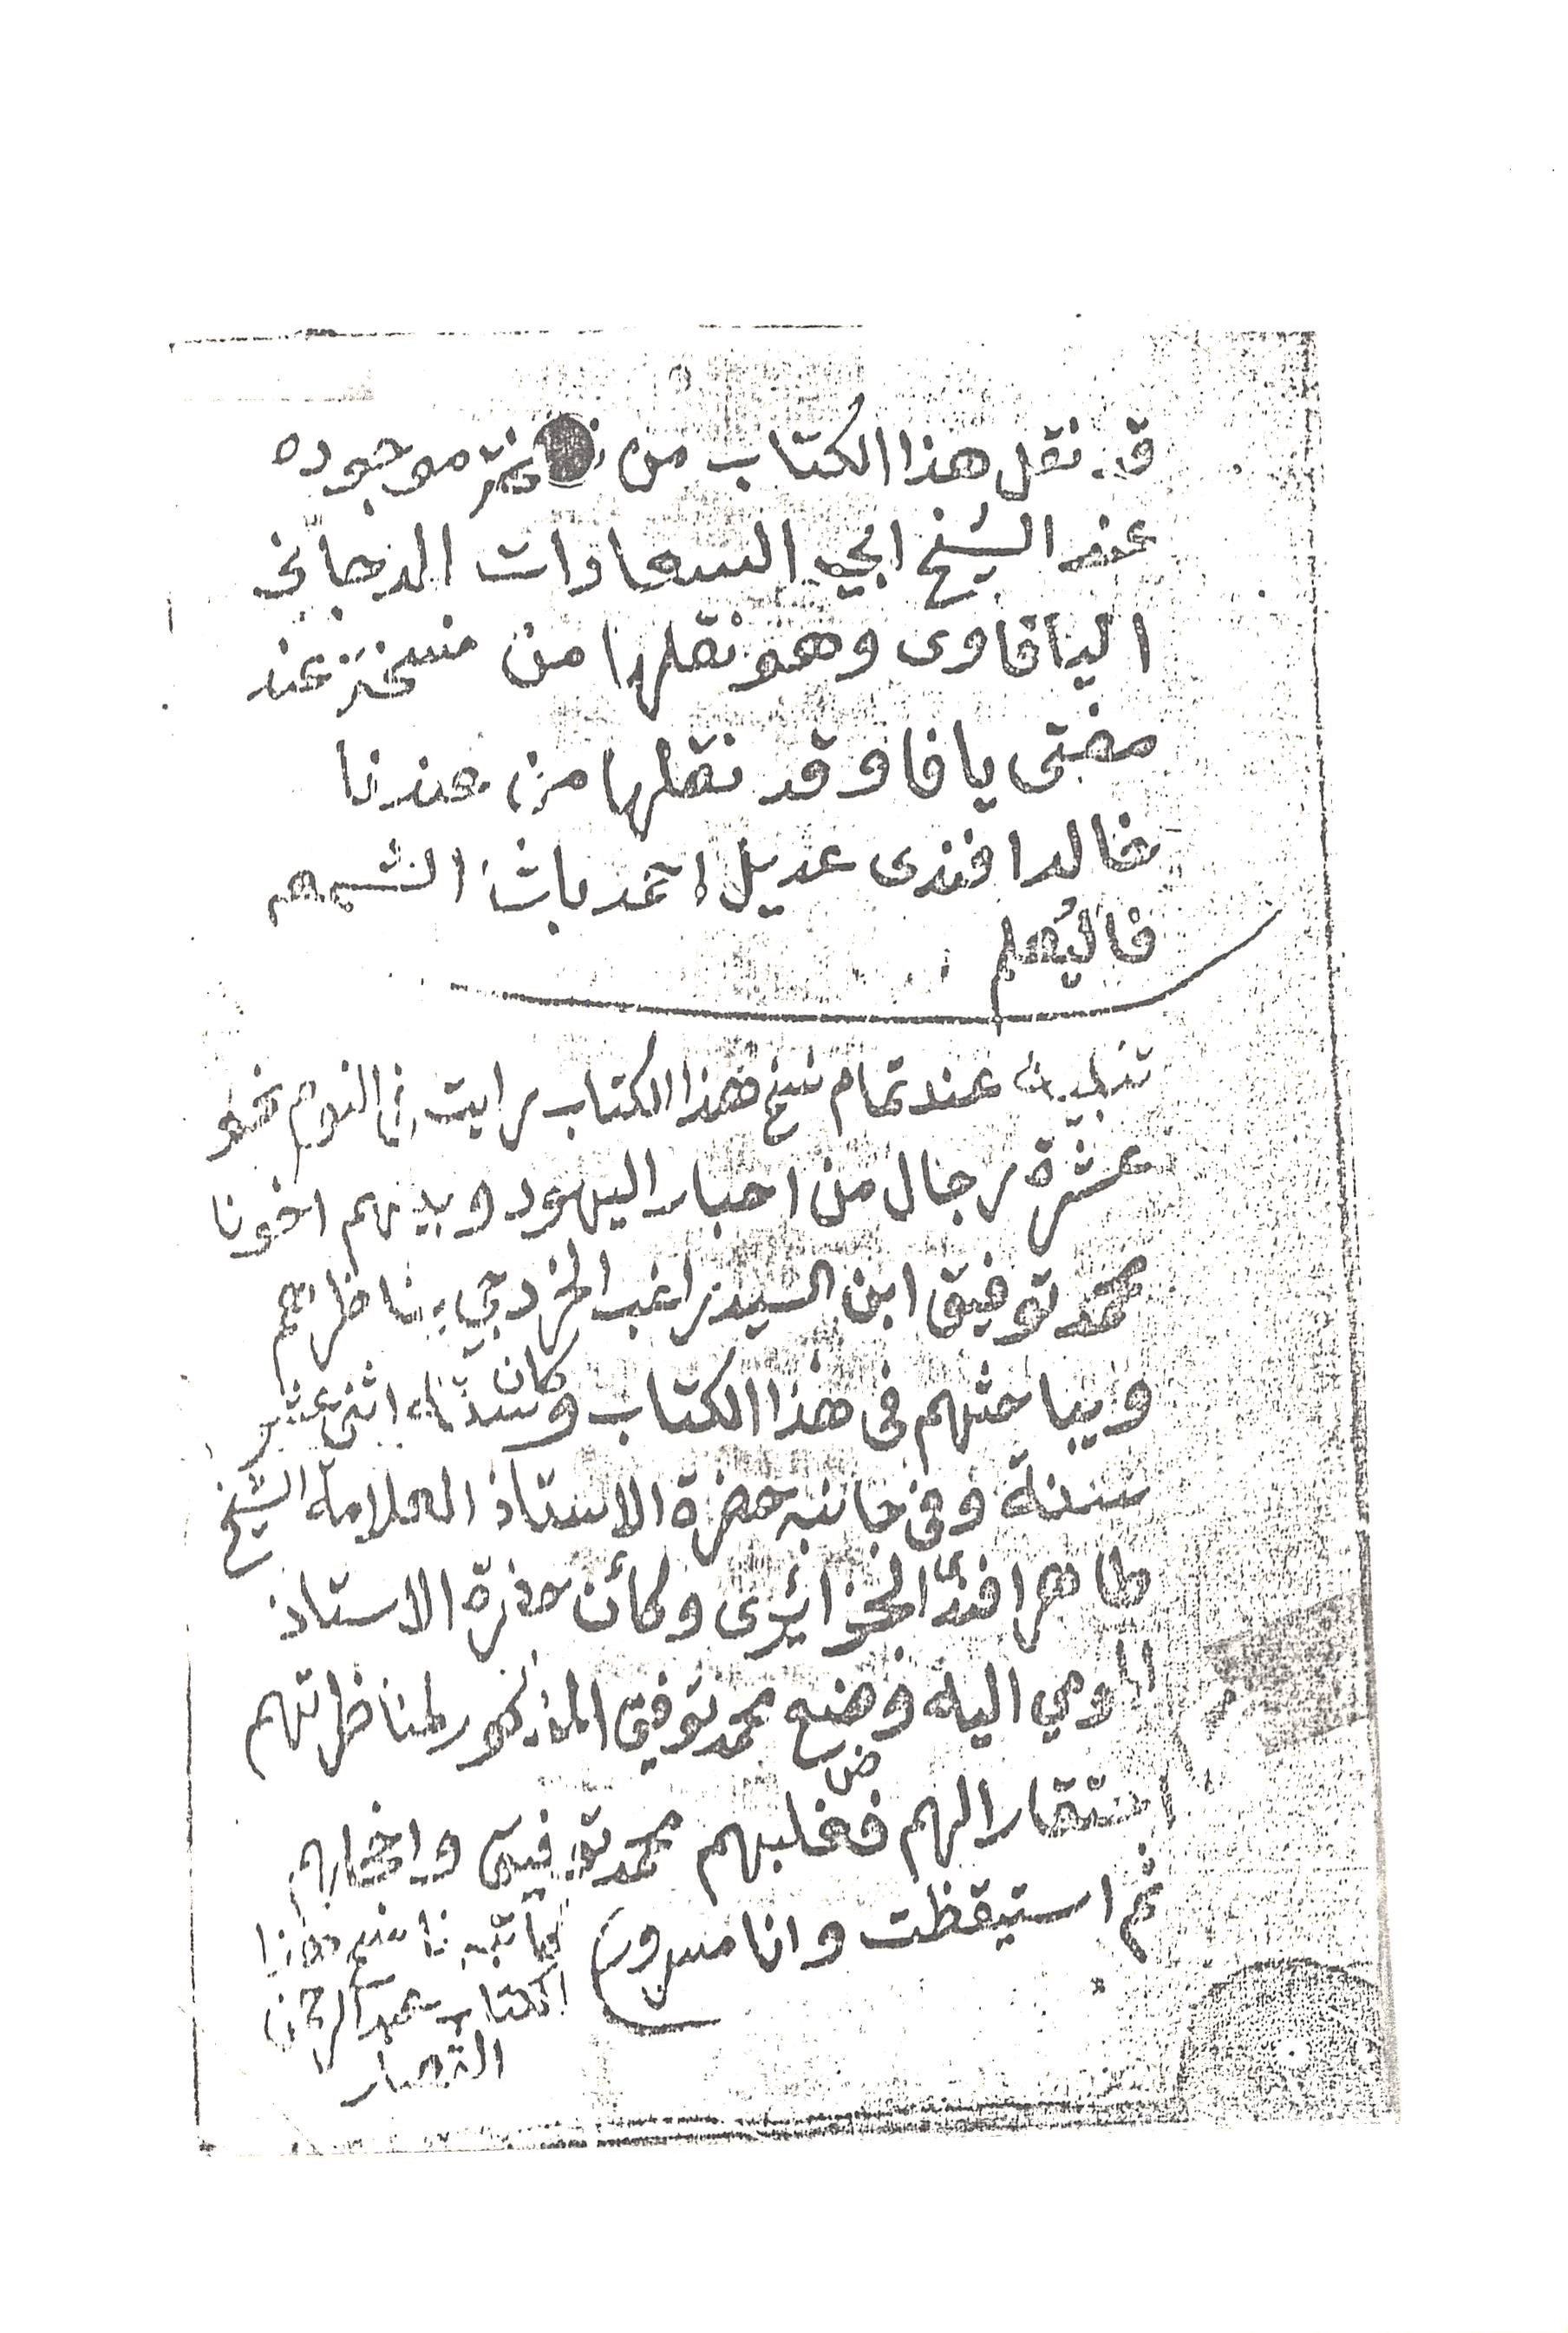 قد نقل هذا الكتاب من نسخة موجوده
عند الشيخ ابي السعادات الدجاني
اليافاوى وهو نقلها من نسخة عند
مفتى يافا وقد نقلها من عندنا
خالد افندى عديل احمد باشا الشمعه
فاليُعلم
تنبيه عند تمام نسخ هذا الكتاب رايت في النوم نحو
عشرة رجال من احبار اليهود وبينهم اخونا
محمد توفيق ابن السيد راغب يناظرهم
ويباحثهم فى هذا الكتاب وكان سنّه اثنى عشر
سنة وفى جانبه حضرة الاستاذ العلامة الشيخ
طاهر افندى الجزائرى وكأن حضرة الاستاذ
المومي اليه وضع محمد توفيق المذكور لمناظرتهم
استقارا لهم فغلبهم محمد توفيق
ثم استيقظت وانا مسرور
كاتبه ناسخ هذا
الكتاب عبد الرحمن
القصار